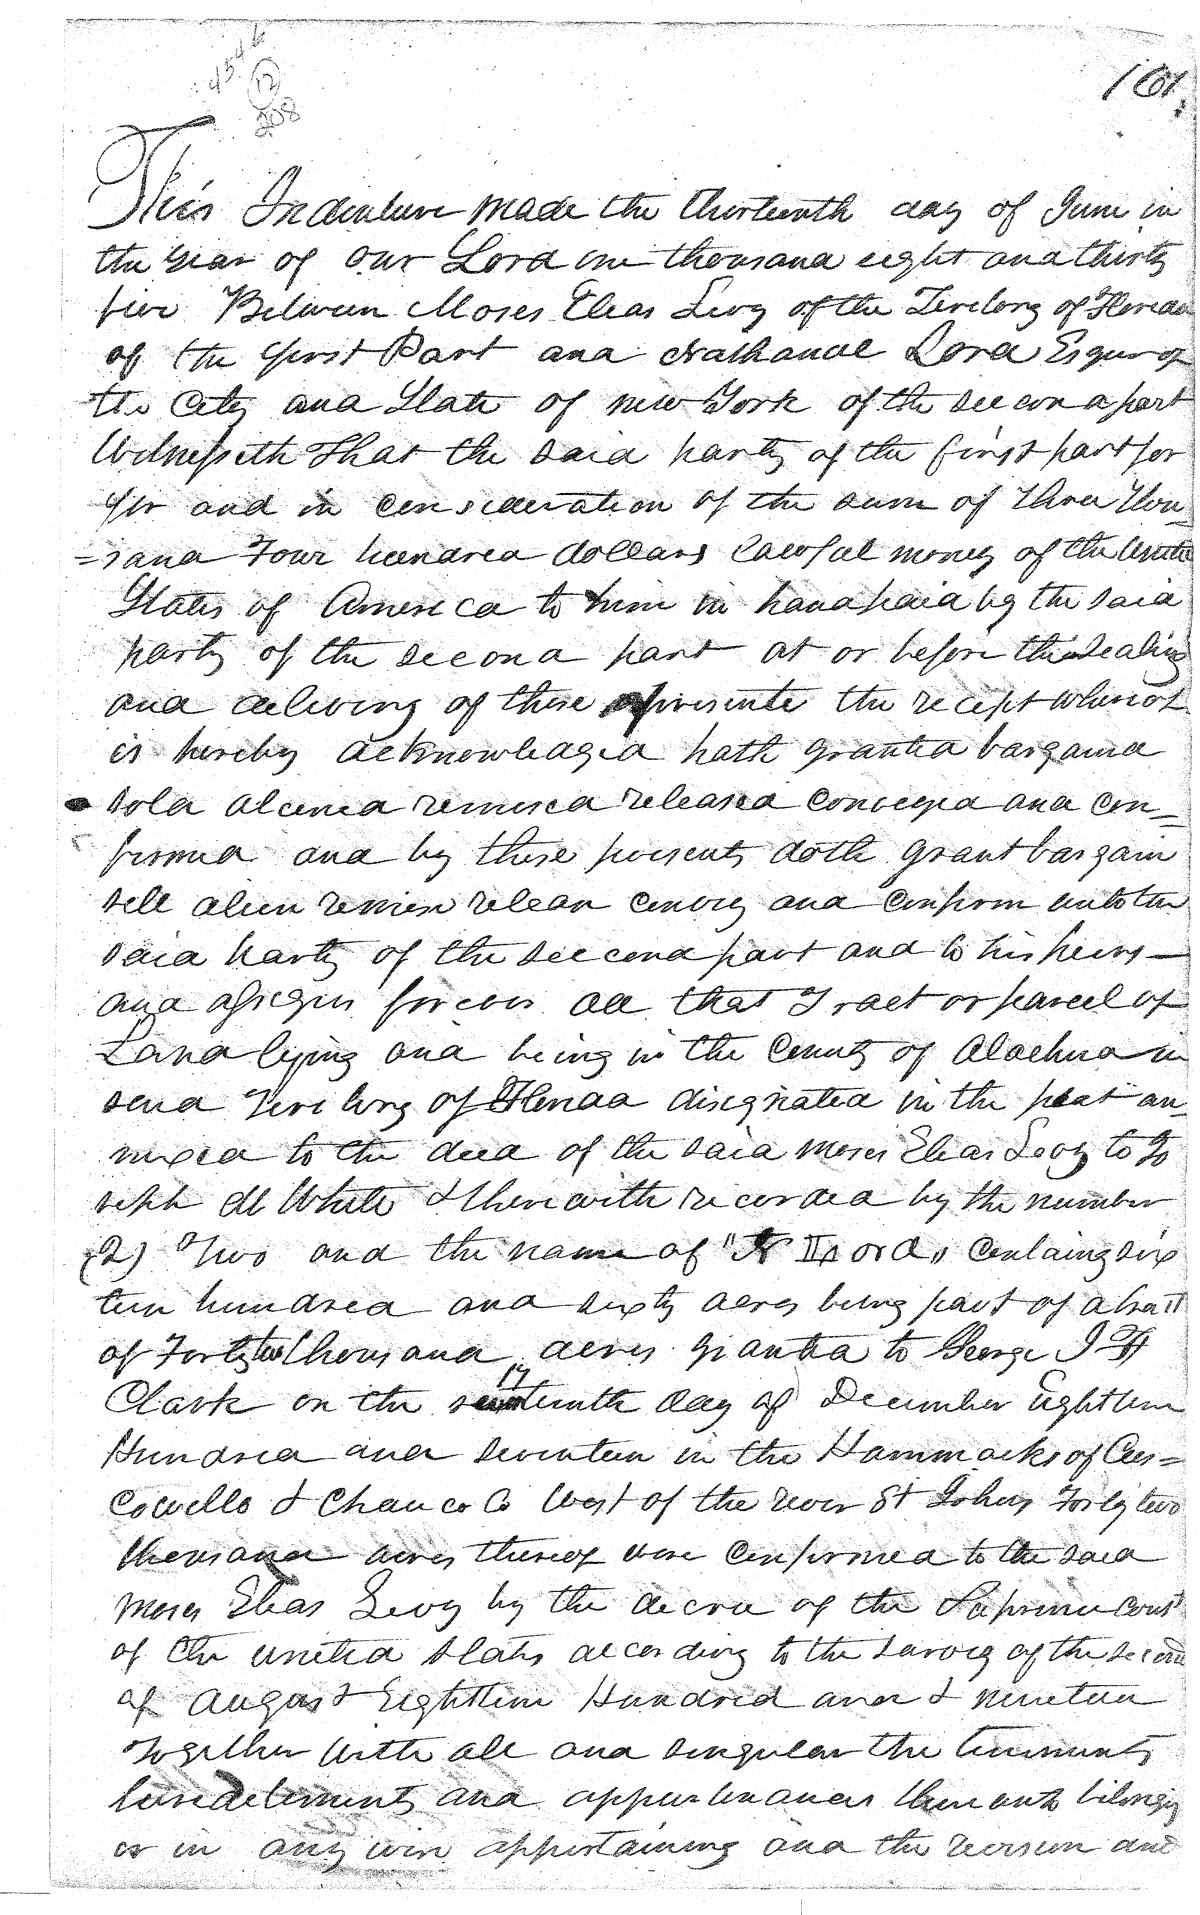 4546
12
208
161.
This Indenture made the thirteenth day of June in
the year of our Lord one thousand eight and thirty
five Between Moses Elias Levy of the Territory of Florida
of the first Part and Nathanael Lord Esqur of
the City and State of new York of the seccond part
Witnesseth That the said party of the first part for
for and in consideration of the sum of Three Thou-
=sand Four hundred dollars lawful money of the United
States of America to him in hand paid by the said
party of the second part at or before the Sealing
and delivering of these presents the receipt whereof
is hereby acknowledged hath granted bargained
sold aliened remised released conveyed and con=
firmed and by these presents doth grant bargain
sell alien remise release convey and confirm unto the
said party of the seccond part and to his heirs
and assigns forever all that Tract or parcel of
Land lying and being in the County of Alachua in
said Territory of Florida designated in the plat an-
nexed to the deed of the said Moses Elias Levy to Jo
seph M White & therewith recorded by the number
(2) Two and the name of "N Lord" containg six
teen hundred and sixty acres being part of a tract
of Forty two thousand acres granted to George J F
Clark on the 17 seventeenth day of December Eighteen
Hundred and seventeen in the Hammocks of Cus=
cowello & Chanco Co West of the river St Johns Forty two
thousand acres thereof were confirmed to the said
Moses Elias Levy by the decree of the Supreme Court
of the united states according to the survey of the second
of August Eighteen Hundred and & nineteen
Together with all and singular the tenements
heredetements and appurtenances thereunto belonging
or in any wise appertaining and the reversion and